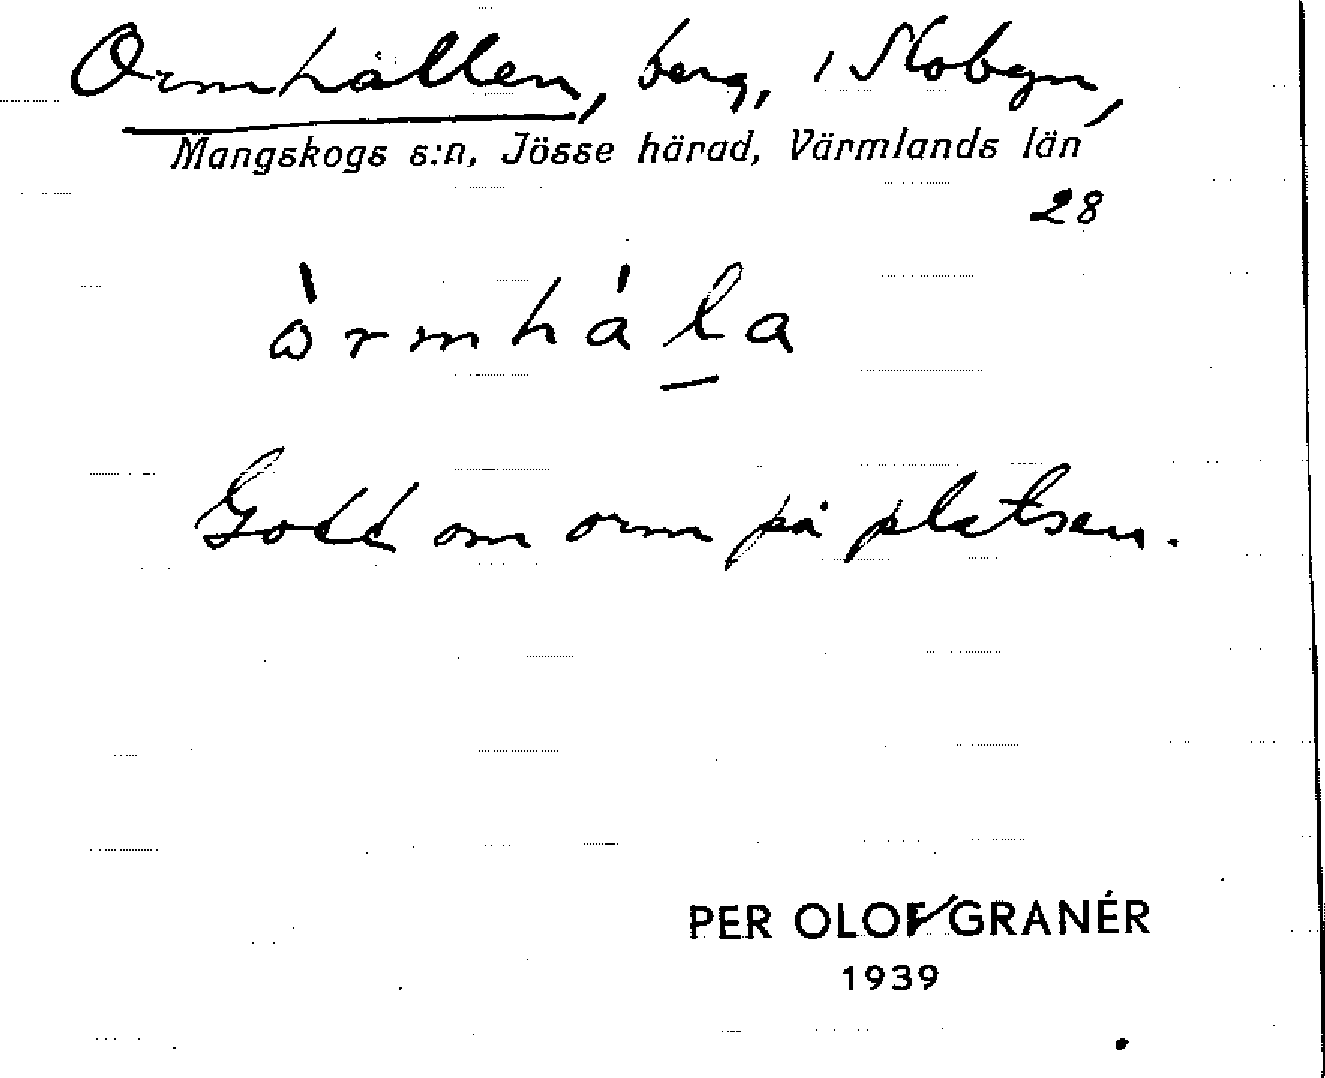 Ormhällen, berg, i Slobyn,
Mangskogs s:n, Jösse härad, Värmlands län
28
òrmhála
Godt om orm på platsen.
PER OLOF GRANÉR
1939